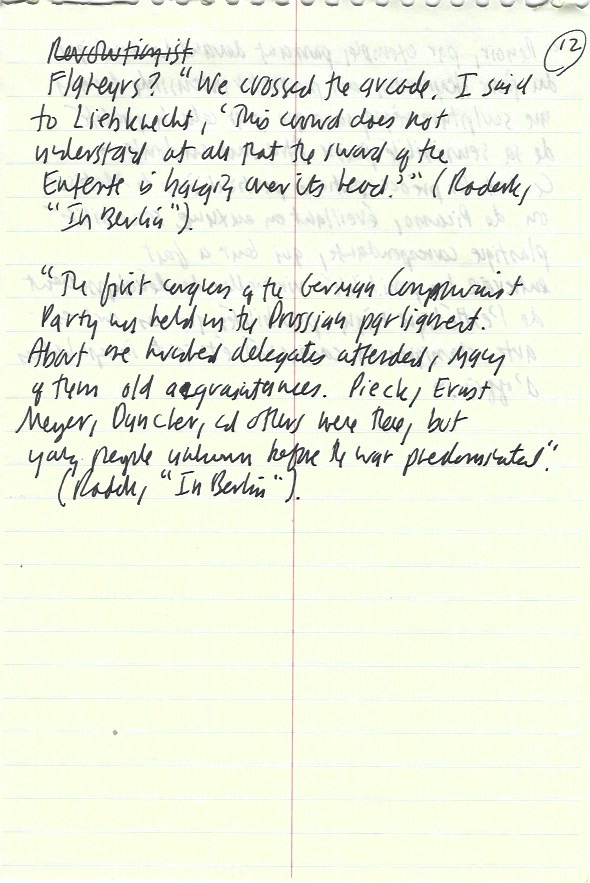 12
Revolutionist
Flaneurs? "We crossed the arcade. I said
to Liebknecht, 'This crowd does not
understand at all that the sword of the
Entente is hanging over its head.'" (Radek,
"In Berlin").
"The first congress of the German Communist
Party was held in the Prussian parliament.
About one hundred delegates attended, many
of them old acquaintances. Pieck, Ernst
Meyer, Duncker, and others were there, but
young people unknown before the war predominated."
(Radek, "In Berlin").